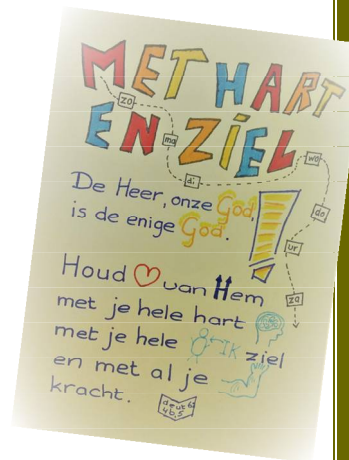 MET HART
EN ZIEL
zo
ma
di
wo
do
vr
za
De Heer, onze God,
is de enige God.
Houd van Hem
met je hele hart
met je hele IK ziel
en met al je
kracht.
deut 6:
4b,5